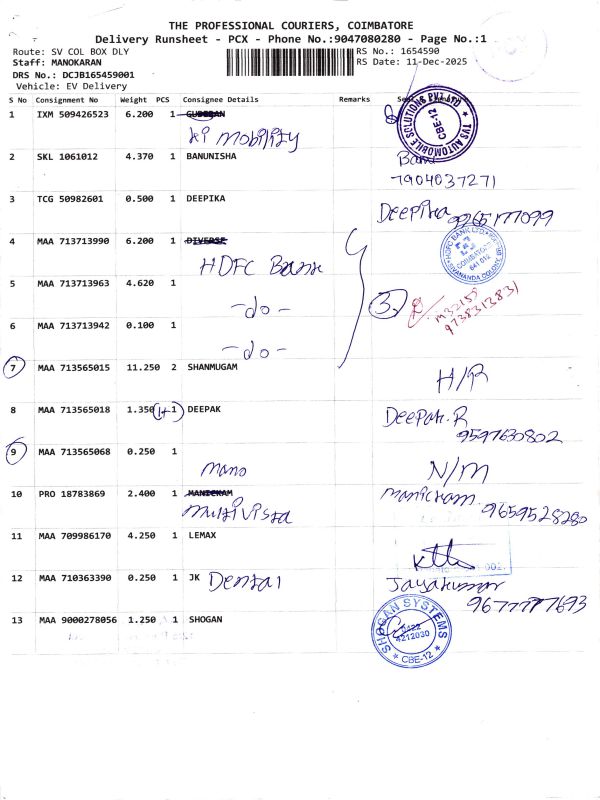 THE PROFESSIONAL COURIERS, COIMBATORE
Delivery Runsheet - PCX - Phone No.:9047080280 - Page No.:1
Route: SV COL BOX DLY
RS No.: 1654590
Staff: MANOKARAN
RS Date: 11-Dec-2025
DRS No.: DCJB165459001
Vehicle: EV Delivery
S No Consignment No Weight PCS Consignee Details Remarks
1 IXM 509426523 6.200 1
ki mobility
TVS AUTOMOBILE SOLUTIONS PVT LTD
CBE-12
2 SKL 1061012 4.370 1 BANUNISHA
Banu
7904037271
3 TCG 50982601 0.500 1 DEEPIKA
Deepika
4 MAA 713713990 6.200 1 DIVERSE
HDFC Bank
HDFC BANK LTD
COIMBATORE
641 012
5 MAA 713713963 4.620 1
-do-
3
9738313831
6 MAA 713713942 0.100 1
-do-
7 MAA 713565015 11.250 2 SHANMUGAM
H/R
8 MAA 713565018 1.350 1+1 DEEPAK
Deepak.R
9597630802
9 MAA 713565068 0.250 1
Mano
N/M
10 PRO 18783869 2.400 1 MANICKAM
multivista
Manickam
9659528280
11 MAA 709986170 4.250 1 LEMAX
12 MAA 710363390 0.250 1 JK Dental
Jayakumar
13 MAA 9000278056 1.250 1 SHOGAN
SHOGAN SYSTEMS
0422
4212030
CBE-12